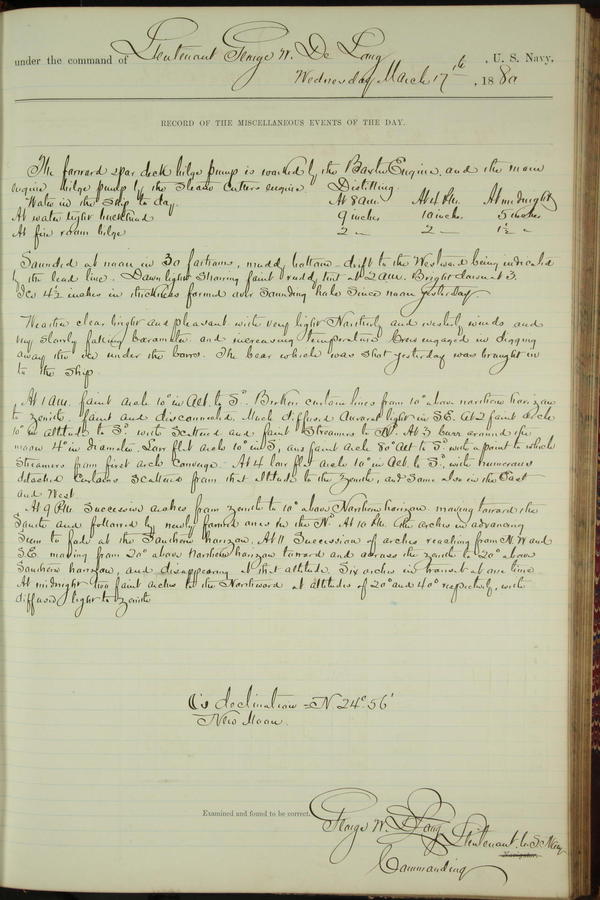 under the command of Lieutenant George W. De Long, U. S. Navy,
Wednesday March 17th, 1880
RECORD OF THE MISCELLANEOUS EVENTS OF THE DAY.
The forward spar deck bilge pump is worked by the Baxter Engine, and the main
engine bilge pump by the Steam Cutters engine Distilling.
Water in the ship to day. At 8 am. At 4 PM. At midnight
At water tight bulkhead 9 inches 10 inches 5 inches
At fire room bilge 2 " 2 " 1½ "
Sounded at noon in 30 fathoms, muddy bottom drift to the Westward being indicated
by the lead line. Dawn light showing faint ruddy tint at 2 am. Bright dawn at 3.
Ice 4½ inches in thickness formed over sounding hole since noon yesterday.
Weather clear bright and pleasant with very light Northerly and westerly winds and
very slowly falling barometer and increasing temperature Crew engaged in digging
away the ice under the bows. The bear which was shot yesterday was brought in
to the ship.
At 1 am. faint arch 10° in Alt. to S°. Broken curtain lines from 10° above northern horizon
to zenith, faint and disconnected. Much diffused Auroral light in S.E. At 2 faint arch
10° in altitude to S°. with scattered and faint streamers to N°. At 3 burr around the
moon 4° in diameter, Low flat arch 10° in S, and faint arch 80° Alt to S°. with a point to which
streamers from first arch converge. At 4 low flat arch 10° in Alt. to S°., with numerous
detached curtains scattered from that altitude to the zenith, and some also in the East
and West.
At 9 PM. Successive arches from zenith to 10° above Northern horizon moving toward the
South and followed by newly formed ones in the N°. At 10 PM. the arches in advancing
seem to fade at the Southern horizon. At 11 Succession of arches reaching from N.W and
S.E. moving from 20° above Northern horizon toward and across the zenith to 20° above
Southern horizon, and disappearing at that altitude. Six arches in transit at one time
At midnight two faint arches to the Northward at altitudes of 20° and 40° respectively, with
diffused light to zenith
☾'s declination = N 24° 56'
New Moon.
Examined and found to be correct.
George W. De Long Lieutenant. U. S. Navy
Navigator.
Commanding